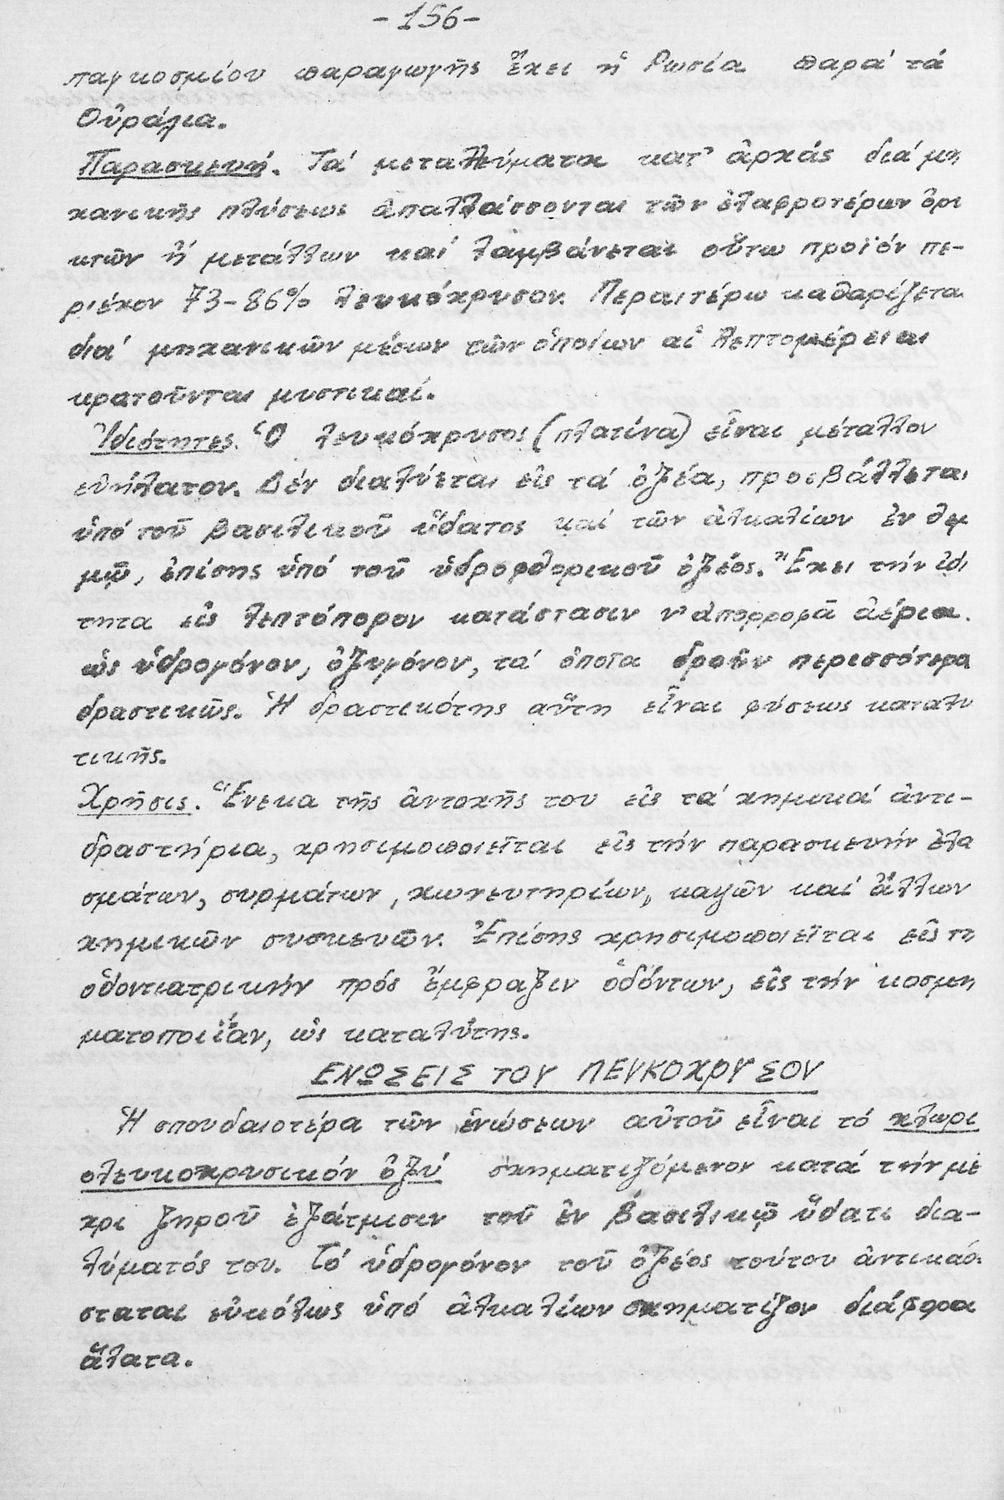 -156-
παγκοσμίου παραγωγῆς ἔχει ἡ Ρωσία παρά τά
Οὐράλια.
Παρασκευή. Τά μεταλλεύματα κατ' ἀρχάς διά μη
χανικῆς πλύσεως ἀπαλλάσσονται τῶν ἐλαφροτέρων ὀρυ
κτῶν ἤ μετάλλων καί λαμβάνεται οὕτω προϊόν πε-
ριέχον 73-86% λευκόχρυσον. Περαιτέρω καθαρίζεται
διά μηχανικῶν μέσων τῶν ὁποίων αἱ λεπτομέρειαι
κρατοῦνται μυστικαί.
Ἰδιότητες. Ὁ λευκόχρυσος (πλατίνα) εἶναι μέταλλον
εὐήλατον. Δέν διαλύεται εἰς τά ὀξέα, προσβάλλεται
ὑπό τοῦ βασιλικοῦ ὕδατος καί τῶν ἀλκαλίων ἐν θερ
μῷ, ἐπίσης ὑπό τοῦ ὑδροφθορικοῦ ὀξέος. Ἔχει τήν ἰδι
τητα εἰς λεπτόπορον κατάστασιν ν' ἀπορροφᾶ ἀέρια.
ὡς ὑδρογόνον, ὀξυγόνον, τά ὁποῖα δροῦν περισσότερα
δραστικῶς. Ἡ δραστικότης αὕτη εἶναι φύσεως καταλυ
τικῆς.
Χρῆσις. Ἕνεκα τῆς ἀντοχῆς του εἰς τά χημικά ἀντι-
δραστήρια, χρησιμοποιεῖται εἰς τήν παρασκευήν ἐλα
σμάτων, συρμάτων, χωνευτηρίων, καψῶν καί ἄλλων
χημικῶν συσκευῶν. Ἐπίσης χρησιμοποιεῖται εἰς τη
ὀδοντιατρικήν πρός ἔμφραξιν ὀδόντων, εἰς τήν κοσμη
ματοποιΐαν, ὡς καταλύτης.
ΕΝΩΣΕΙΣ ΤΟΥ ΛΕΥΚΟΧΡΥΣΟΥ
Ἡ σπουδαιοτέρα τῶν ἑνώσεων αὐτοῦ εἶναι τό χλωρι
ολευκοχρυσικόν ὀξύ σχηματιζόμενον κατά τήν μέ
χρι ξηροῦ ἐξάτμισιν τοῦ ἐν βασιλικῷ ὕδατι δια-
λύματός του. Τό ὑδρογόνον τοῦ ὀξέος τούτου ἀντικαθί
σταται εὐκόλως ὑπό ἀλκαλίων σχηματίζον διάφορα
ἅλατα.